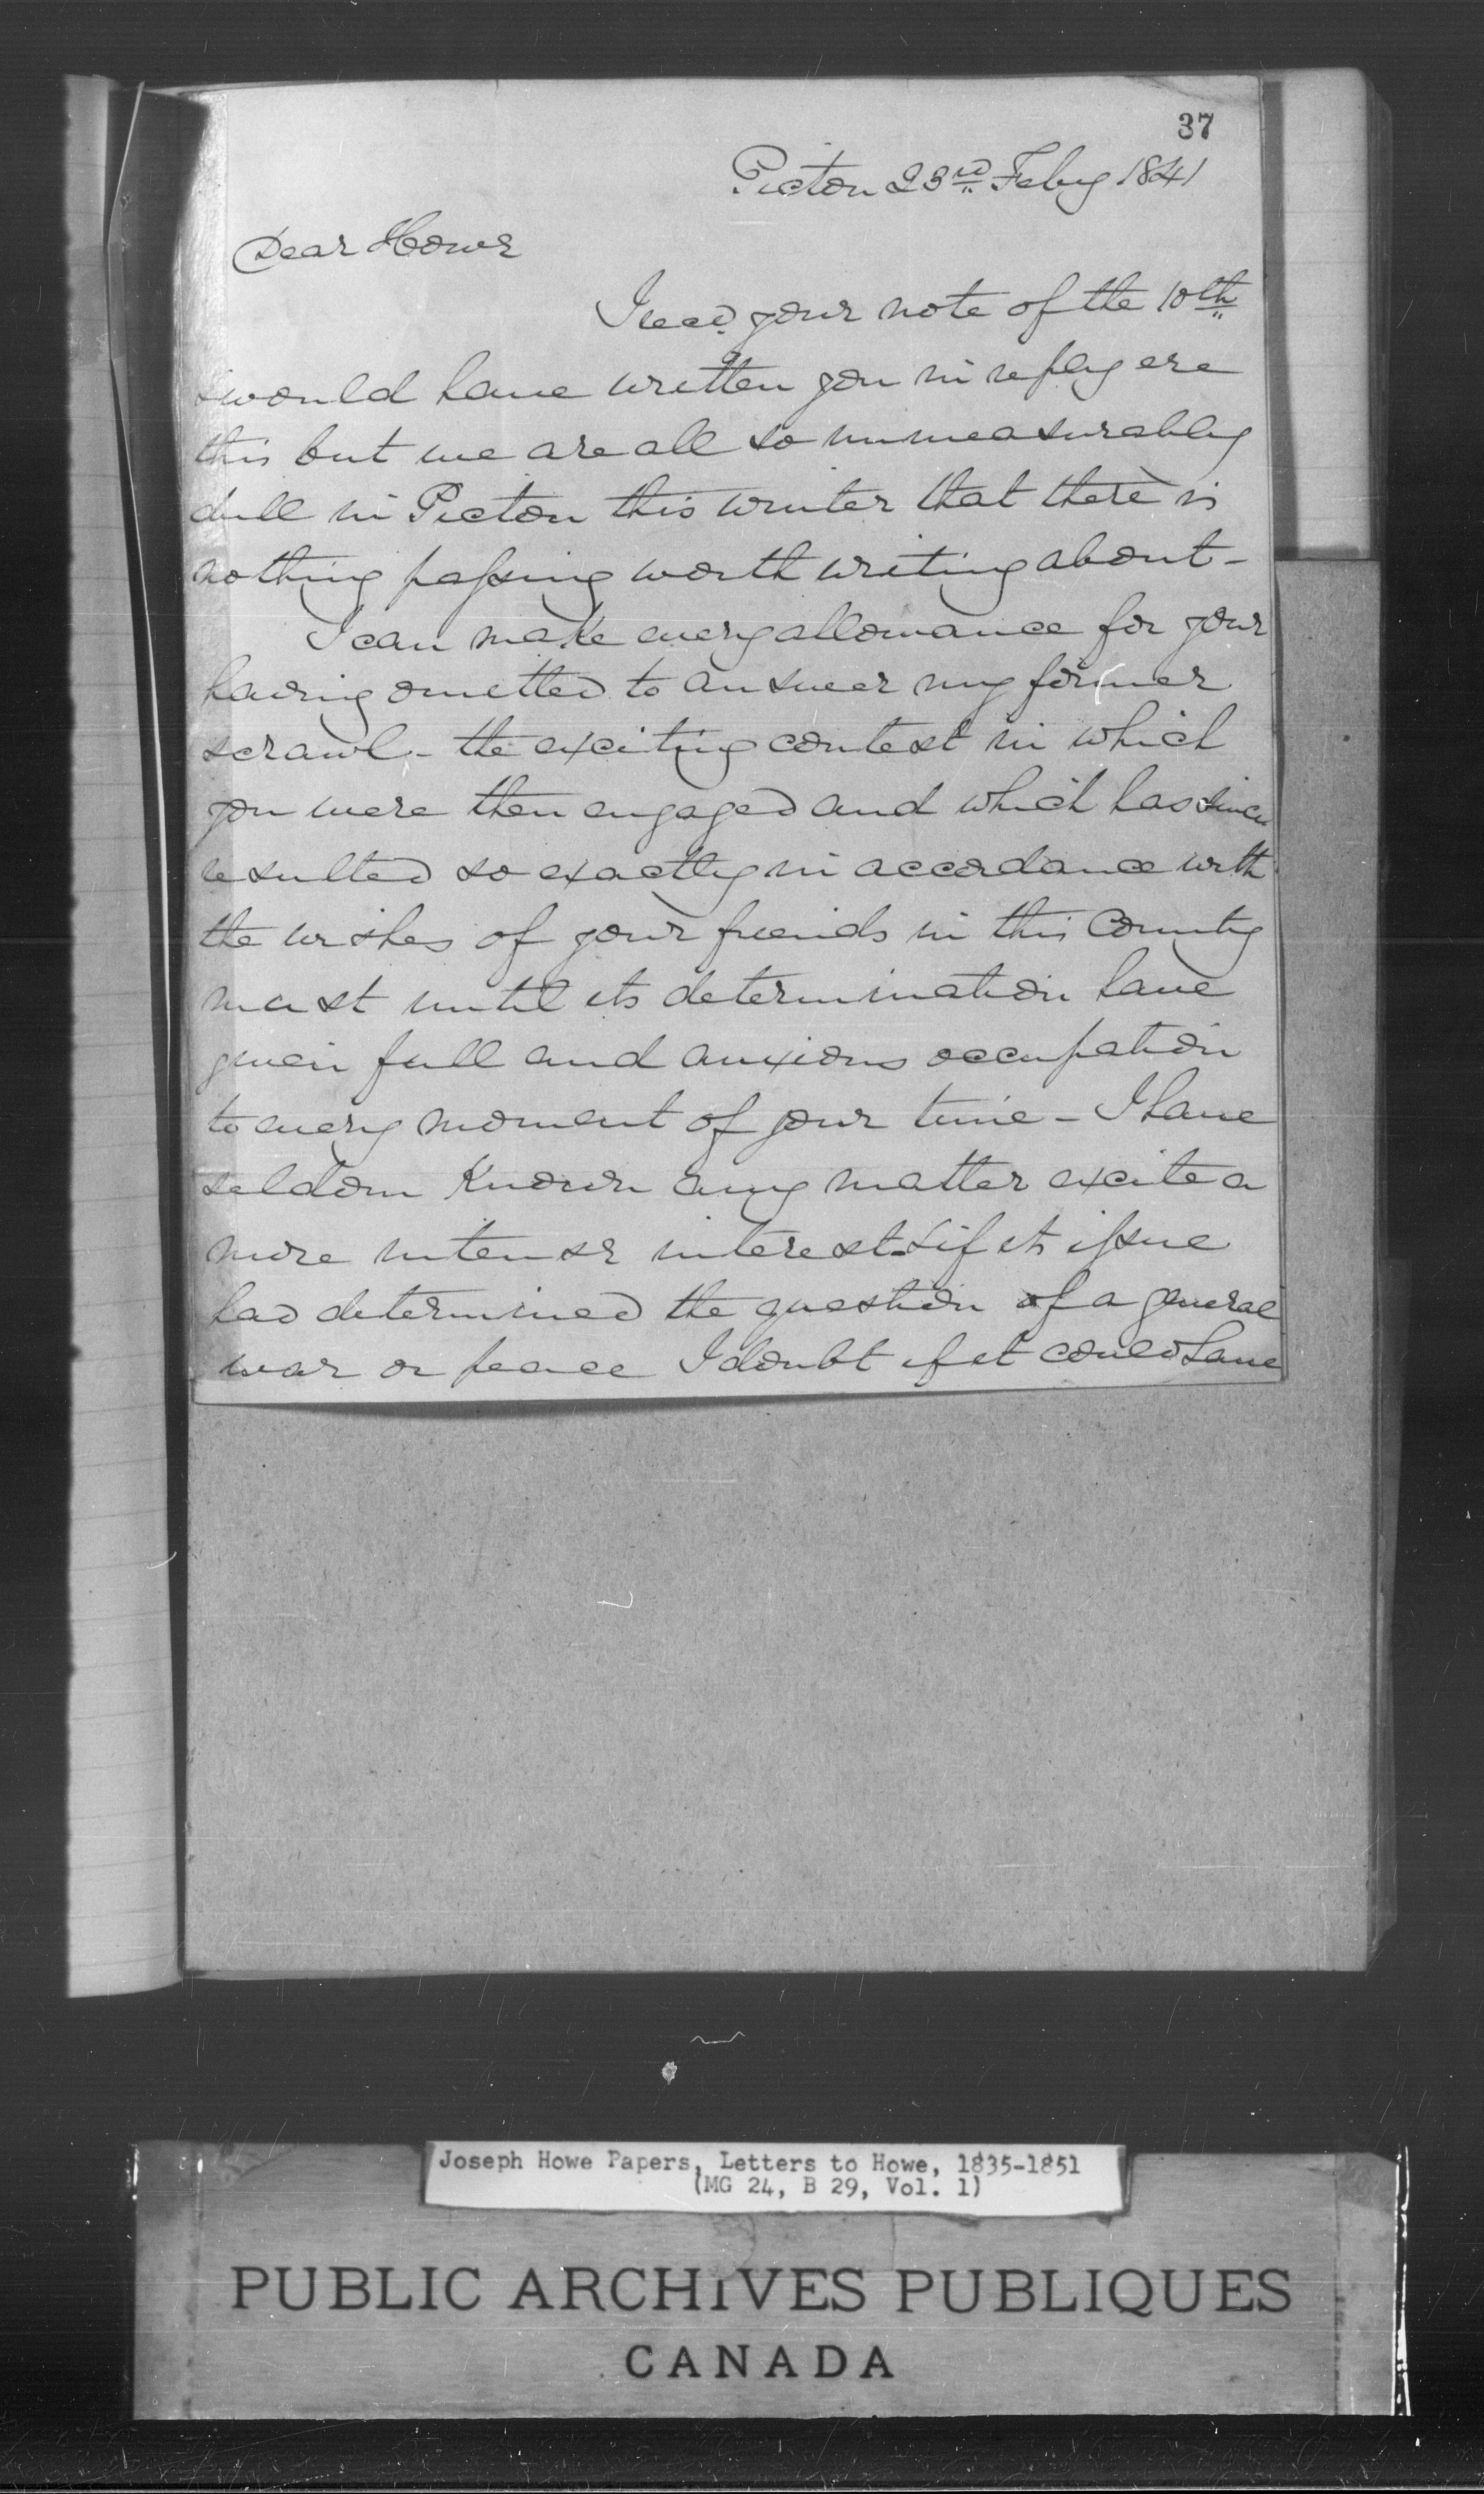 37
Picton 23rd Feby 1841
Dear Howe
I recd. your note of the 10th
& would have written you in reply ere
this but we are all so immeasurably
dull in Picton this winter that there is
nothing passing worth writing about -
I can make every allowance for your
having omitted to answer my former
scrawl - the exciting contest in which
you were then engaged and which has since
resulted so exactly in accordance with
the wishes of your friends in this County
must until its determination have
given full and anxious occupation
to every moment of your time - I have
seldom known any matter excite a
more intense interest - & if its issue
had determined the question of a general
war or peace I doubt if it could have
Joseph Howe Papers, Letters to Howe, 1835-1851
(MG 24, B 29, Vol. 1)
PUBLIC ARCHIVES PUBLIQUES
CANADA